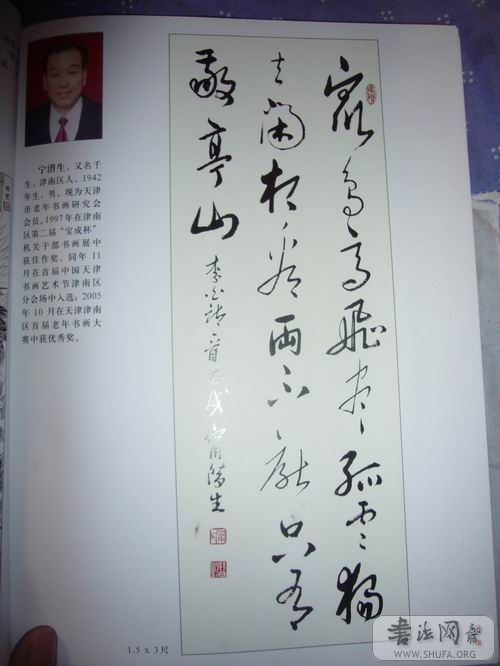 宁潜生，又名千
生，津南区人，1942
年生，男，现为天津
市老年书画研究会
会员。1997年在津南
区第二届“宝成杯”
机关干部书画展中
获佳作奖，同年 11
月在首届中国天津
书画艺术节津南区
分会场中入选，2005
年 10 月在天津津南
区首届老年书画大
赛中获优秀奖。
众鸟高飛尽孤云独
去闲相看兩不厌只有
敬亭山
李白诗一首 丙戌 甯潜生
1.5 x 3尺
书法网
WWW.SHUFA.ORG